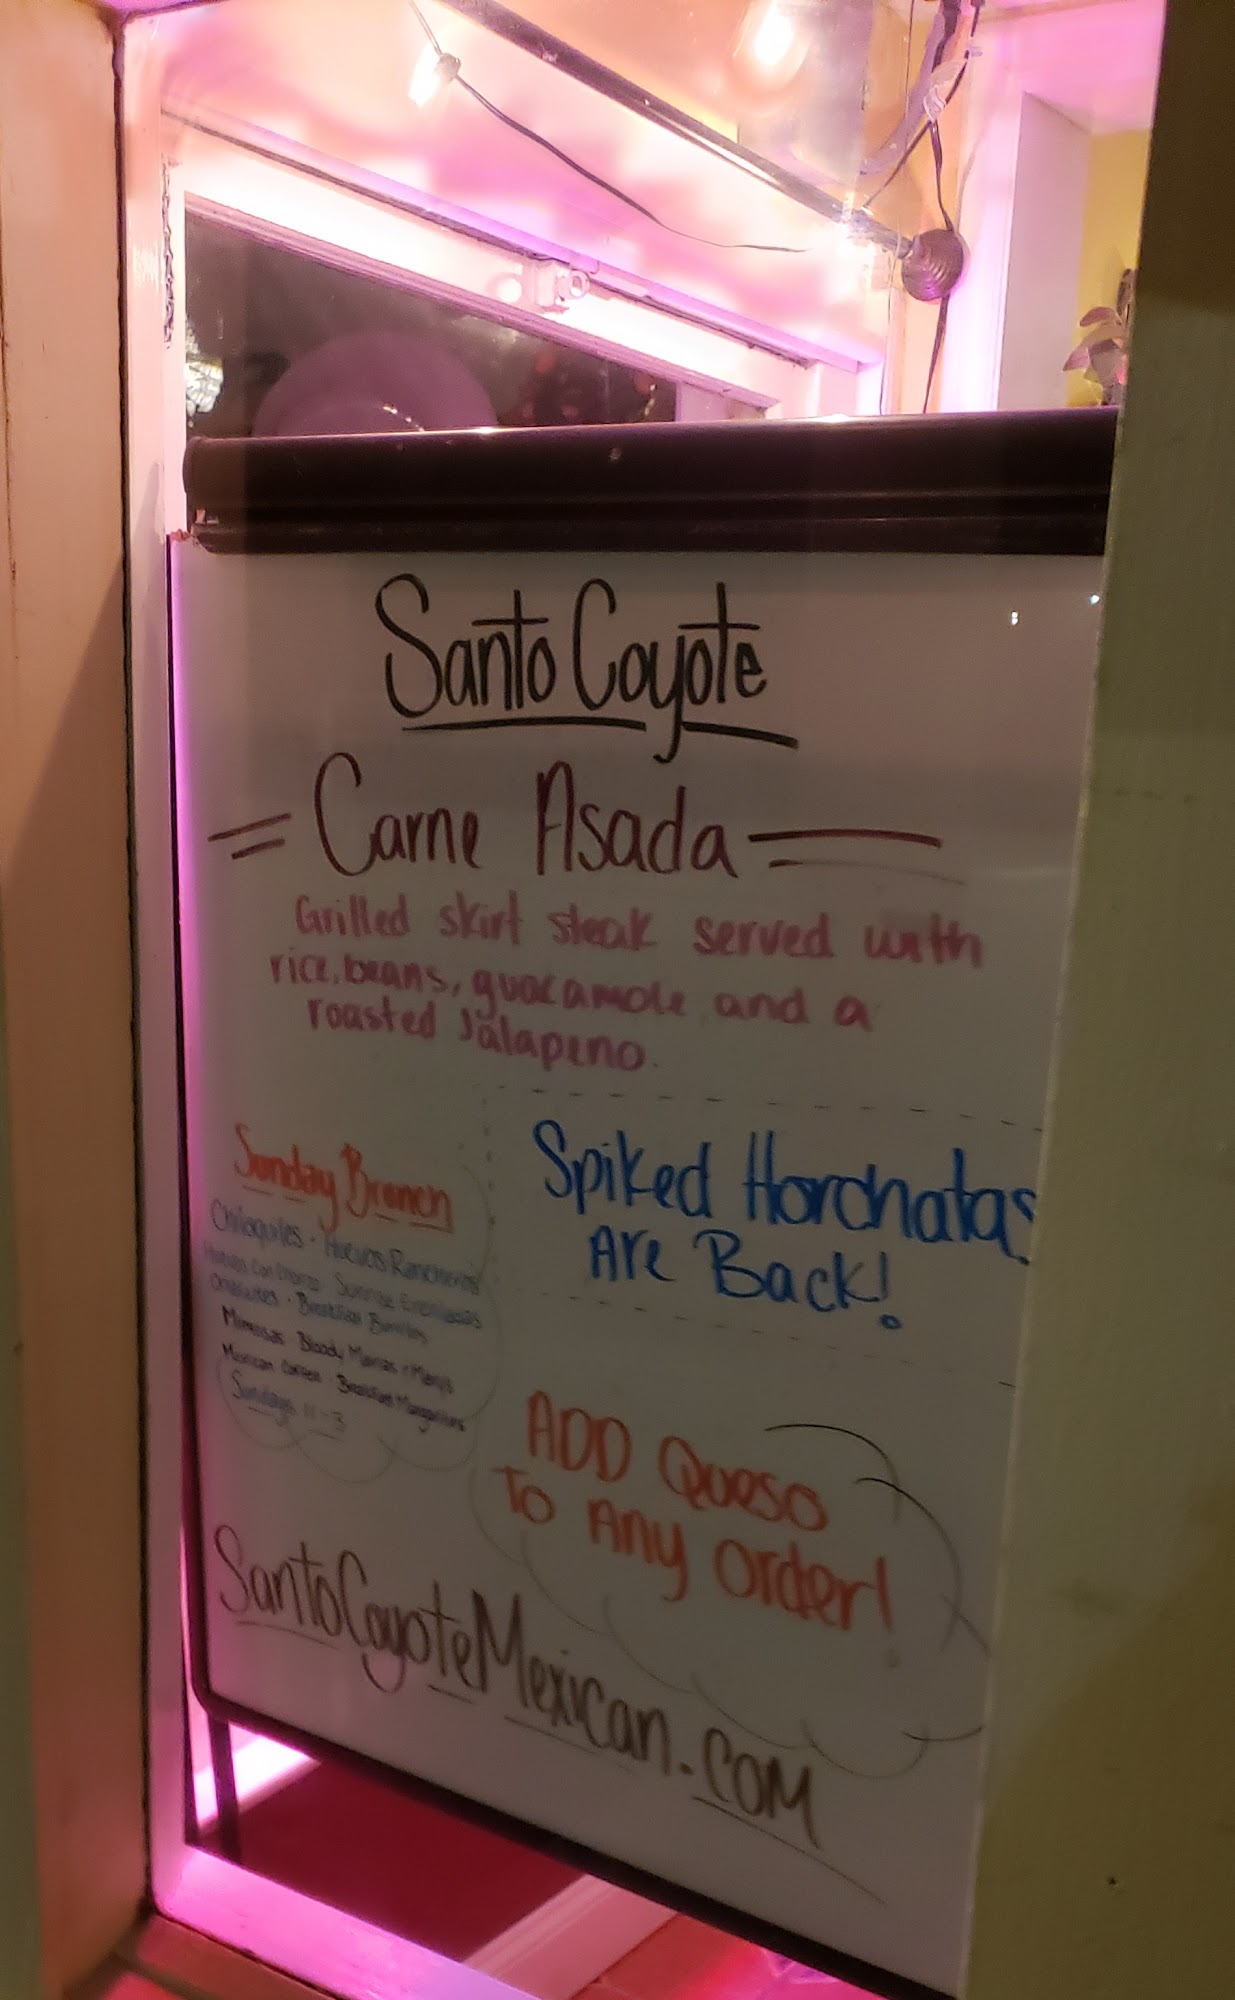 Santo Coyote
Carne Asada
Grilled skirt steak served with
rice, beans, guacamole and a
roasted Jalapeno.
Sunday Brunch
Chilaquiles · Huevos Rancheros
Huevos Con Chorizo · Sunrise Enchiladas
Omelettes · Breakfast Burritos
Mimosas Bloody Marias + Marys
Mexican Coffee · Breakfast Margaritas
Sundays 11-3
Spiked Horchatas
Are Back!
ADD Queso
To Any Order!
SantoCoyoteMexican.com